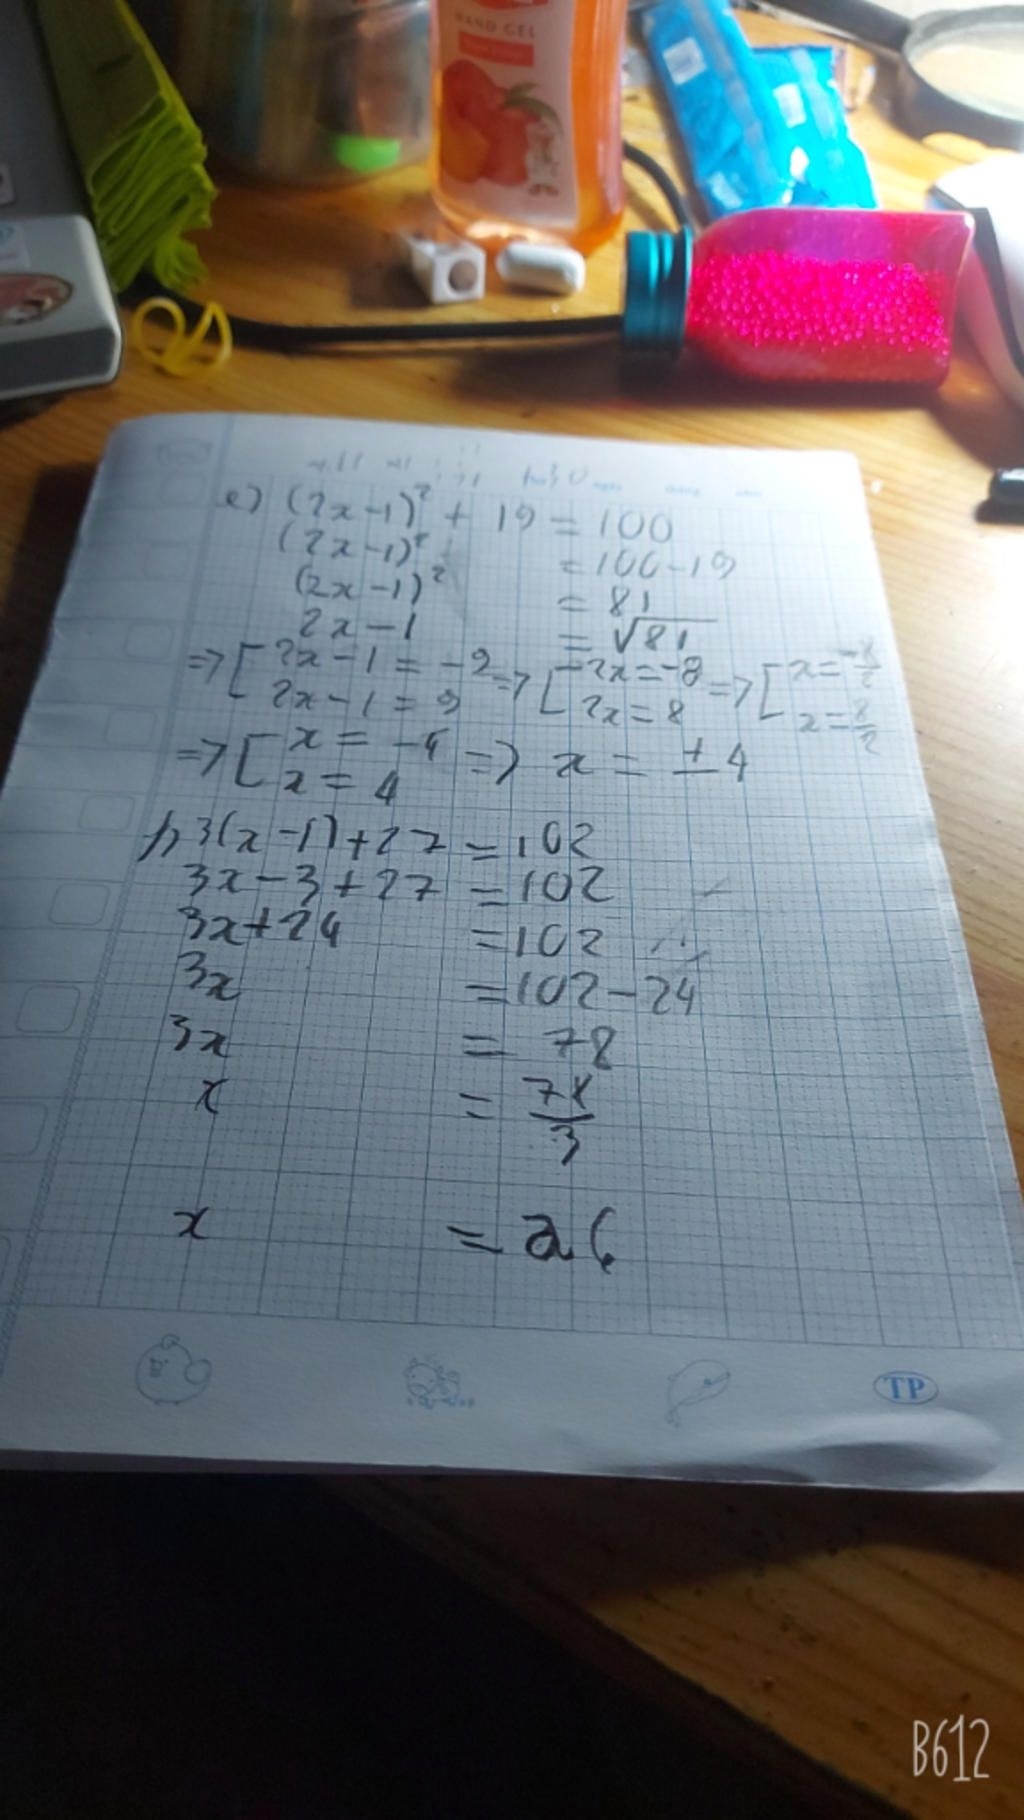 HAND GEL
e) (2x-1)² + 19 = 100
(2x-1)² = 100-19
(2x-1)² = 81
2x-1 = √81
=> [ 2x-1 = -9 => [ -2x = -8 => [ x = -8/2
2x-1 = 9 2x = 8 x = 8/2
=> [ x = -4 => x = ±4
x = 4
3(x-1)+27 = 102
3x-3+27 = 102
3x+24 = 102
3x = 102-24
3x = 78
x = 78/3
x = 26
TP
B612